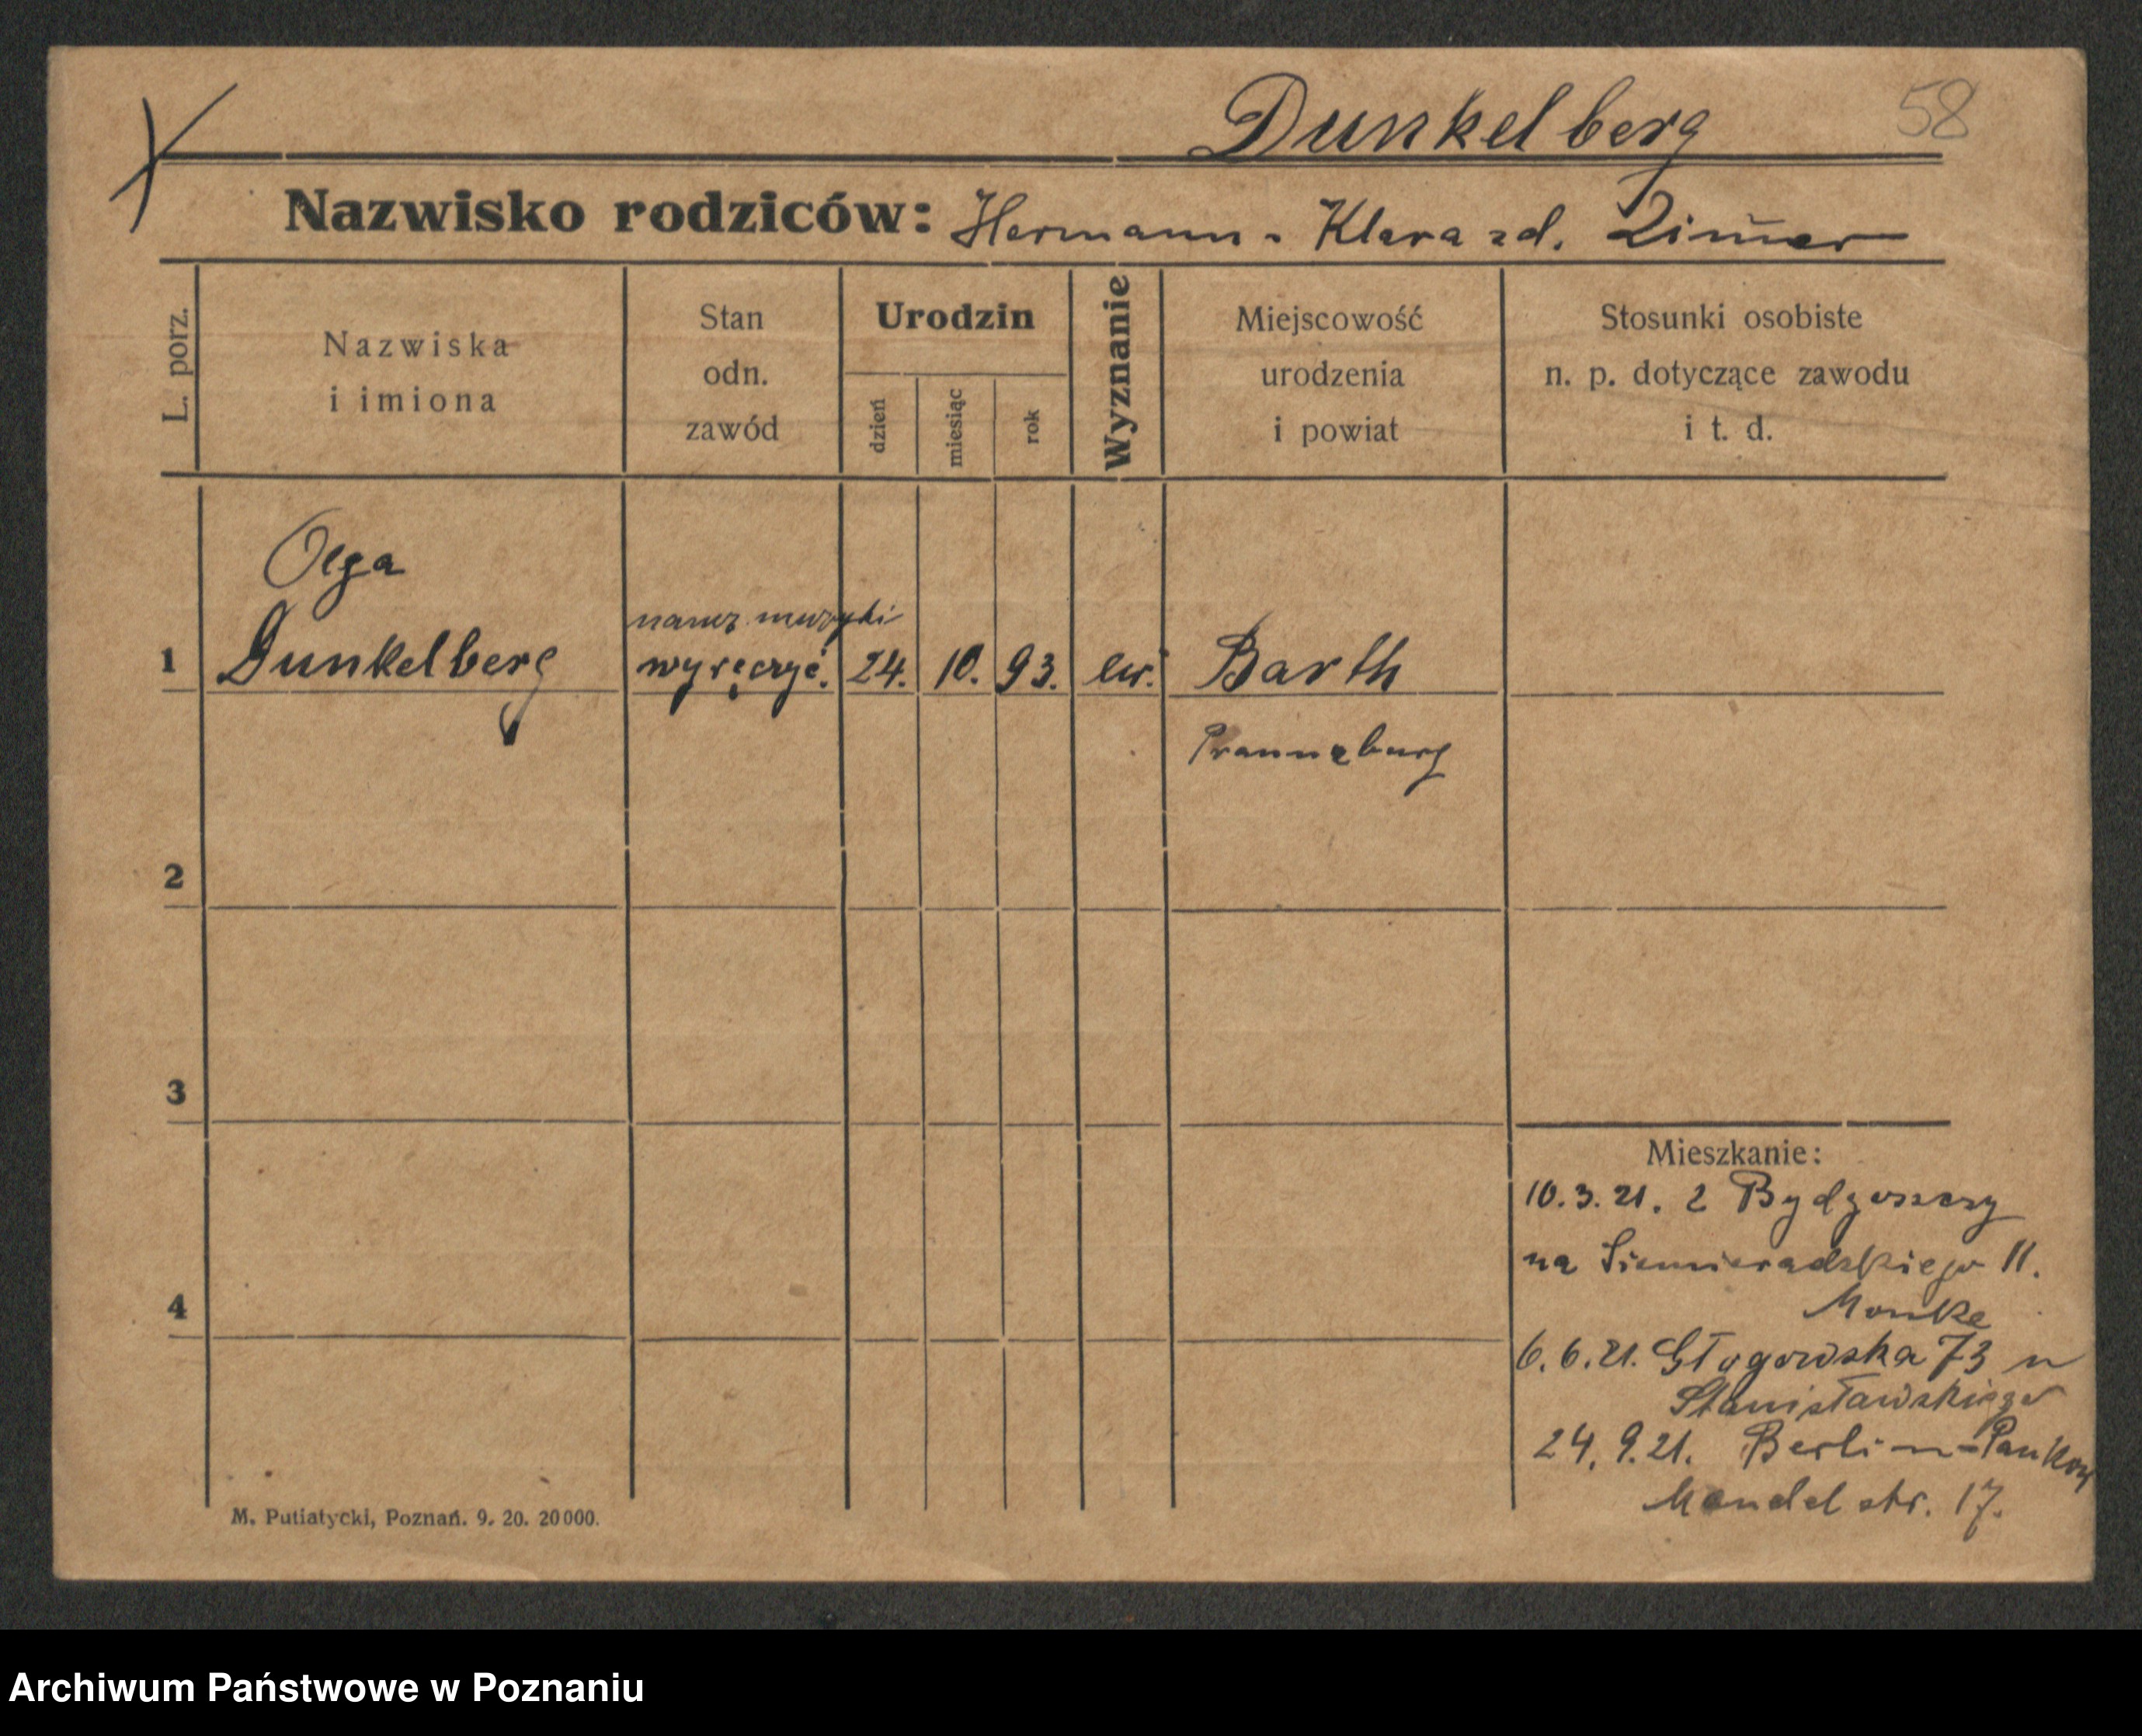 58
Dunkelberg
Nazwisko rodziców: Hermann - Klara zd. Zim̄er
L. porz.
Nazwiska
i imiona
Stan
odn.
zawód
Urodzin
dzień
miesiąc
rok
Wyznanie
Miejscowość
urodzenia
i powiat
Stosunki osobiste
n. p. dotyczące zawodu
i t. d.
Olga
naucz. muzyki
1 Dunkelberg 24. 10. 93. ew. Barth
2
3
4
Mieszkanie:
10.3.21. z Bydgoszczy
na Siemieradskiego 11.
Monke
6.6.21. Głogowska 73 u
Stanisławskiego
24.9.21. Berlin-Pankow
Mendel str. 17.
M. Putiatycki, Poznań. 9. 20. 20000.
Archiwum Państwowe w Poznaniu